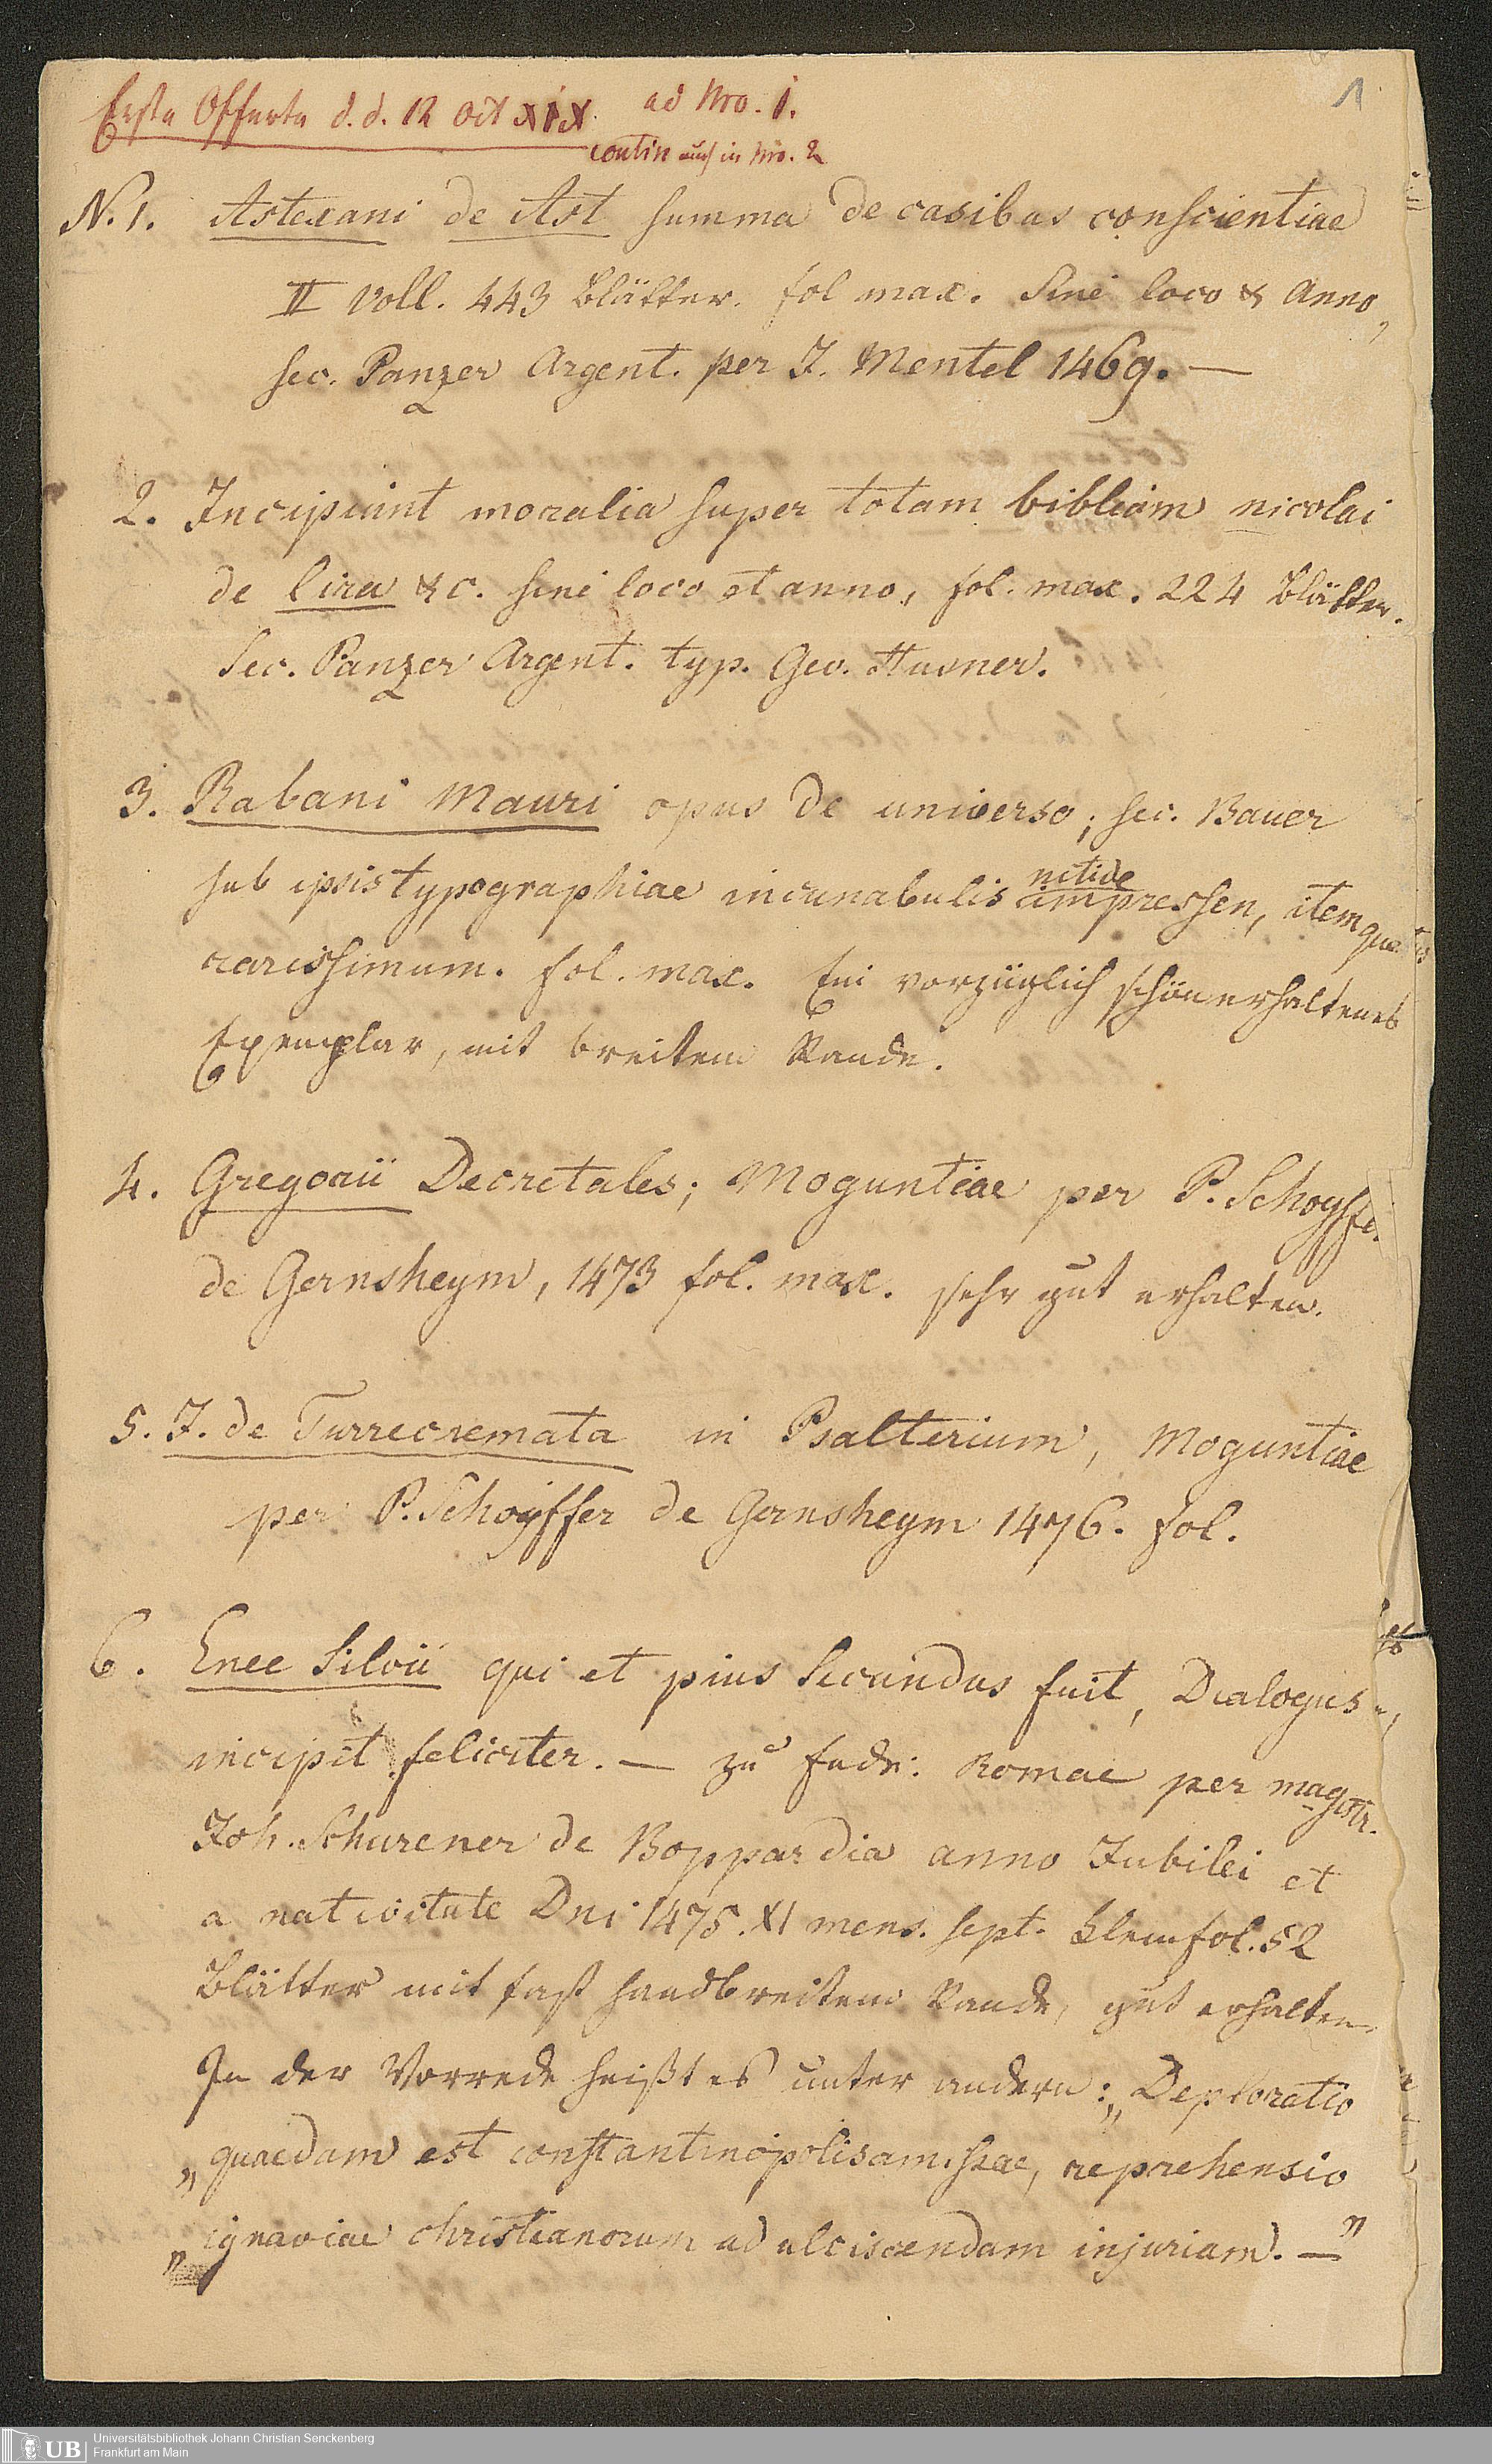 1
Erste Offerte d. d. 12 Oct XIX. ad Nro. 1.
contin auch in Nro. 2
N. 1. Astexani de Ast summa de casibus conscientiae
II voll. 443 Blätter. fol max. Sine loco & Anno,
sec. Panzer Argent. per J. Mentel 1469. —
2. Incipiunt moralia super totam bibliam nicolai
de lira &c. sine loco et anno, fol. max. 224 Blätter.
Sec. Panzer Argent. typ. Geo. Husner.
3. Rabani Mauri opus de universo; sec. Bauer
nitide
sub ipsis typographiae incunabulis impressen, itemque
rarissimum. fol. max. Ein vorzüglich schön erhaltenes
Exemplar, mit breitem Rande.
4. Gregorii Decretales; Moguntiae per P. Schoyffe.
de Gernsheym, 1473 fol. max. sehr gut erhalten.
5. J. de Turrecremata in Psalterium, Moguntiae
per P. Schoyffer de Gernsheym 1476. fol.
6. Enee Silvii qui et pius Secundus fuit, Dialogus
incipit feliciter. — zu Ende: Romae per magistr.
Joh. Schurener de Boppardia anno Jubilei et
a nativitate Dni 1475. XI mens. sept. klein fol. 52
Blätter mit fast handbreitem Rande, gut erhalten.
In der Vorrede heißt es unter andern: „Deploratio
„quaedam est constantinopolis amissae, reprehensio
„ignaviae christianorum ad ulciscendam injuriam. —"
UB Universitätsbibliothek Johann Christian Senckenberg
Frankfurt am Main